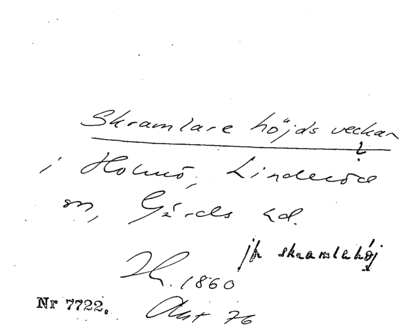 Skramlare höjds veckan
i Holmö, Linderöd
sn, Gärds hd.
jfr skramlehöj
1860
Nr 7722. Okt 76